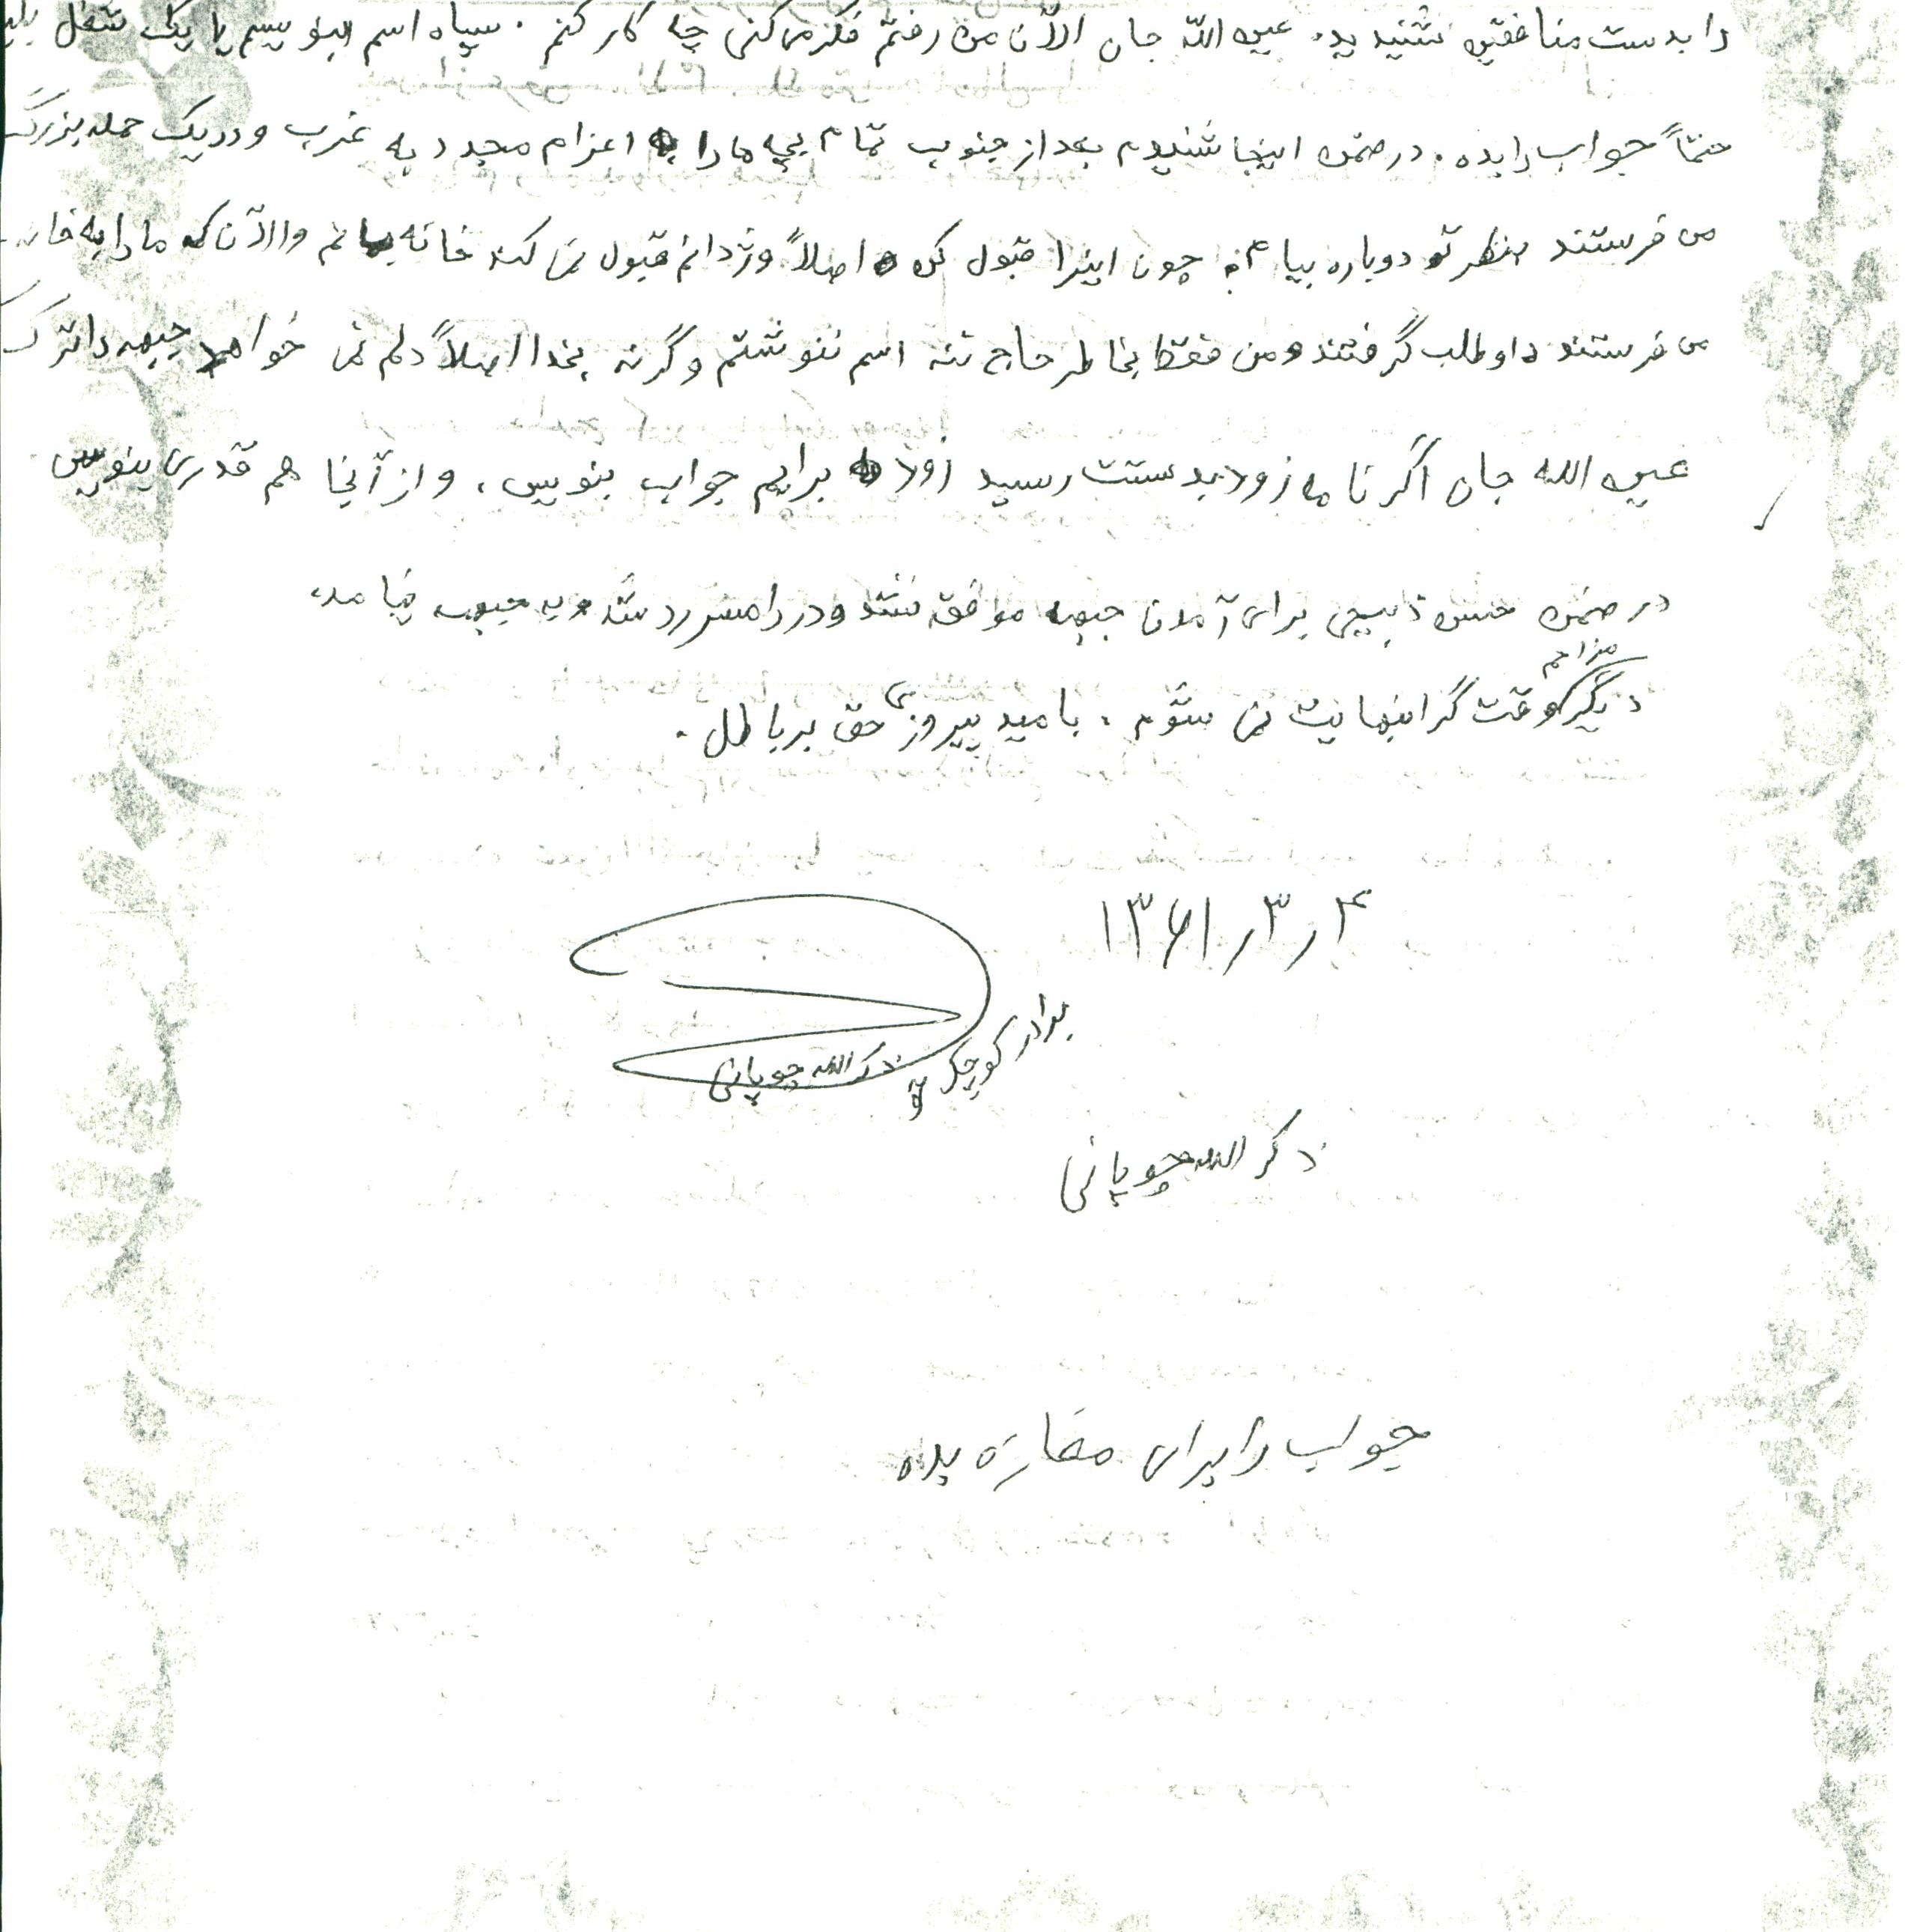 را بدست منافقین شنیدید. عین الله جان الآن من رفتم فکر می کنی چه کار کنم . سپاه اسم بنویسم یا یک شغل
حتماً جواب را بده . در ضمن اینجا شنیدم بعد از جنوب تمام بچه ها را به اعزام مجدد به غرب و در یک حمله بزرگ
می فرستند بنظر تو دوباره بیام نه چون اینرا قبول کن که اصلاً وژدانم قبول نمی کند خانه بمانم و الآن که ما را به
می فرستند داوطلب گرفتند و من فقط بخاطر حاج ننه اسم ننوشتم و گرنه بخدا اصلاً دلم نمی خواهد جبهه را ترک
عین الله جان اگر نامه زود بدستت رسید زود برایم جواب بنویس، و از آنجا هم قدری بنویس
در ضمن حسن ذبیحی برای آمدن جبهه موفق نشد و در رامسر رد شد و به جبهه نیامد،
دیگر مزاحم وقت گرانبهایت نمی شوم . بامید پیروزی حق بر باطل .
۴ر۳ر۱۳۶۱
برادر کوچک تو
ذکرالله چوپانی
ذکرالله چوپانی
جواب را برای مغازه بده